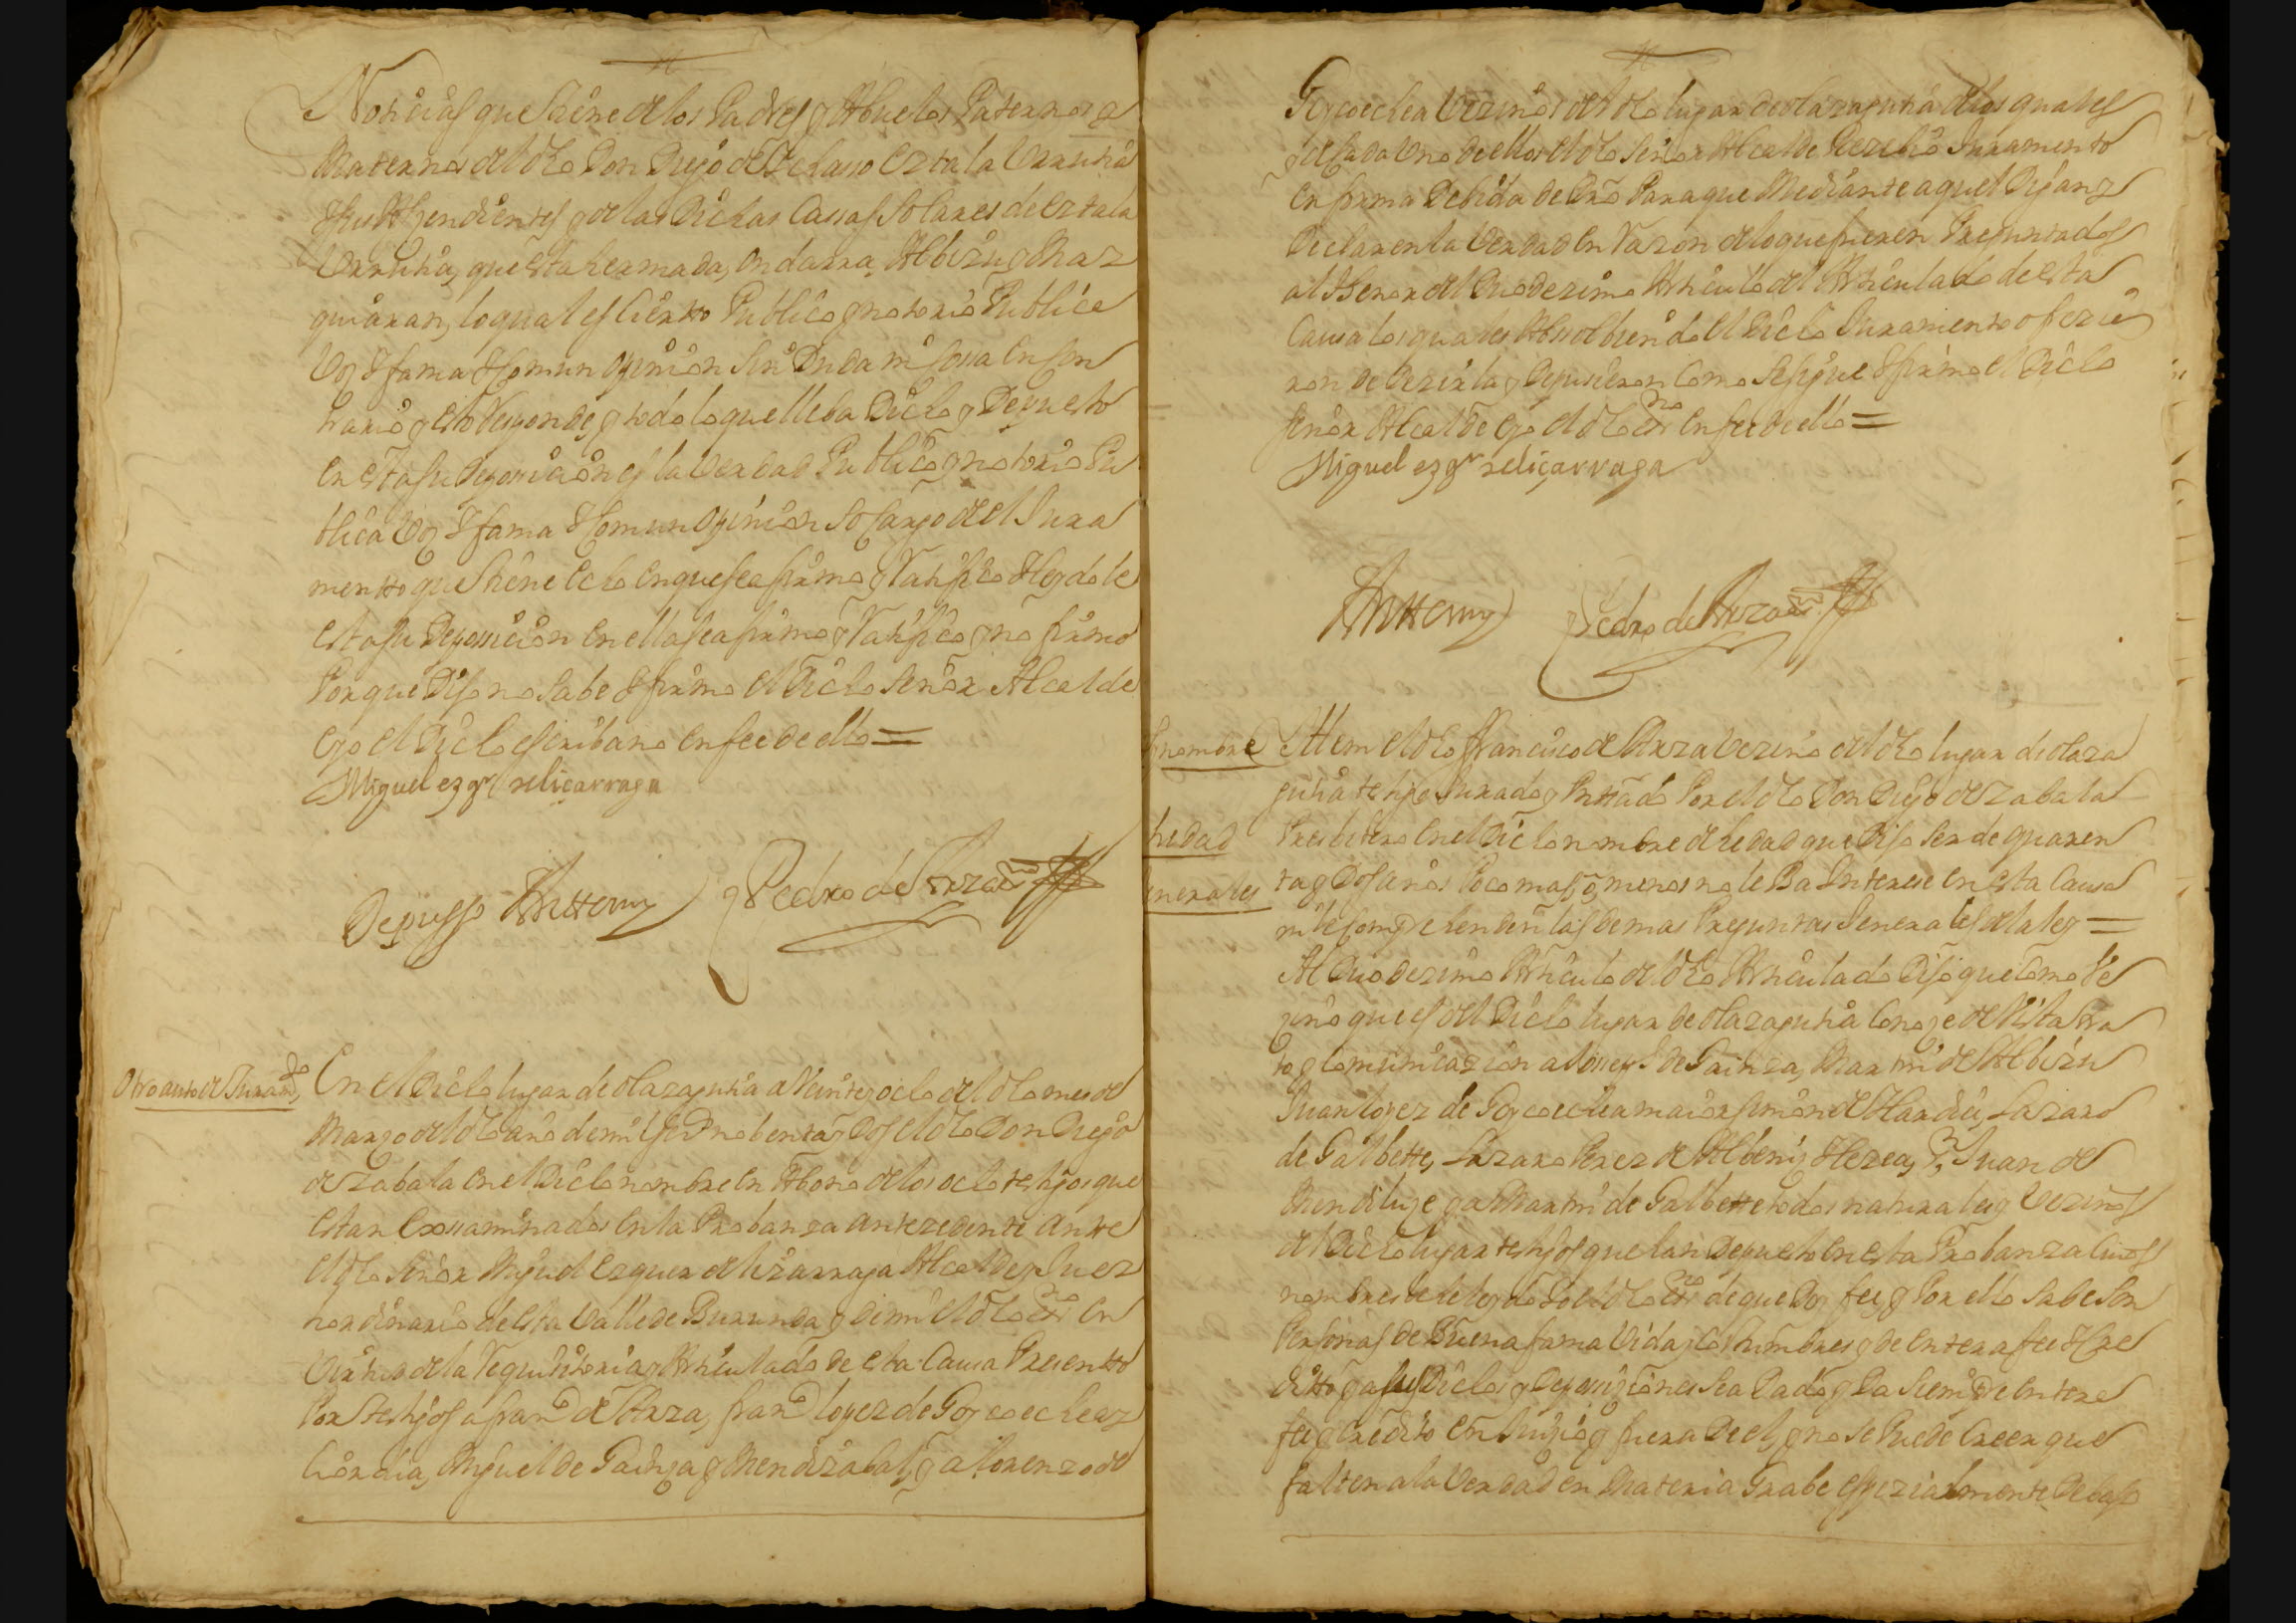 Noticias que tiene de los Padres y Abuelos Paternos y
Maternos del dho Don Diego de ... Eztala Urrutia
... y de las Dichas Cassas Solares de Eztala
Urrutia, que esta hermada, Ondarra, Albizu y Maz
quiaran, lo qual es Cierto Publico y notorio Publica
Voz & fama & Comun opinion sin Duda ni cossa en con
trario y esto Responde, y todo lo que lleba Dicho y Depuesto
en esta su Deposicion es la Verdad Publico y notorio Pu
blica Voz & fama & Comun opinion so cargo de el Jura
mentto que tiene echo en que se afirmo y Ratifico & leydole
esta su Deposicion en ella se afirmo y Ratifico y no firmo
Porque Dijo no sabe & firmo el Dicho señor Alcalde
e yo el Dicho escribano en fee de ello =
Miguel ezqr de liçarraga
Depusso Antte my Pedro de Arza
Otro auto de Juramto
En el Dicho lugar de olazagutia a Veinte y ocho del dho mes de
Marzo del dho año de mil ss nobenta y Dos el dho Don Diego
de Zabala en el Dicho nombre en Abono de los ocho testigos que
estan Exssaminados en la Probanza antezedente ante
el dho señor Miguel Ezquer de lizarraga Alcalde y Juez
hordinario de esta Valle de Burunda y de mi el dho essno en
Virtud de la Requisitoria y Articulado de esta Causa Presentto
Por testigos a franco de Arza, franco lopez de Goycoechea y
Ciordia, Miguel de Gainza y Mendizabal, y a lorenzo de
Goycoechea Vezinos del dho lugar de olazagutia de los quales
y de Cada Uno de ellos el dho señor Alcalde Rezibio Juramento
en forma Debida de Dro Para que Mediante aquel Digan y
Declaren la Verdad en Razon de lo que fueren Preguntados
al thenor del Duodezimo Articulo del Articulado de esta
Causa los quales Absolbiendo el Dicho Juramento ofrecie
ron de Dezirla y Depusieron como se sigue & firmo el Dicho
señor Alcalde e yo el dho essno en fee de ello =
Miguel ezqr de liçarraga
Antte my Pedro de Arza
Nombre
Ittem el dho francisco de Arza Vezino del dho lugar de olaza
gutia testigo Jurado y Pressdo Por el dho Don Diego de Zabala
hedad
Presbitero en el Dicho nombre de hedad que Dijo ser de quaren
Generales
ta y Dos años Poco mas, o menos no le Ba Interese en esta Causa
ni le Comprehenden las demas Preguntas Generales de la ley =
Al Duodezimo Articulo del dho Articulado Dijo que Como Ve
zino que es del Dicho lugar de olazagutia Conoze de Vista tra
to y Comunicazion a ... de Gainza, Martin de Albizu
Juan lopez de Goycoechea maior simon de Olandii, Lazaro
de Galbette, Lazaro Perez de Albeniz Herea, Juan de
Mendiluze y a Martin de Galbette todos naturales y Vezinos
del Dicho lugar testigos que han Depuesto en esta Probanza Cuios
nombres le he leydo Yo el dho essno de que Doy fee y Por ello sabe son
Personas de Buena fama Vida y Costumbres y de entera fee & Cre
ditto y a sus Dichos y Deposiziones sea Dado y Da Siempre entera
fee y Credito en Juizio y fuera De el, y no se Puede Creer que
falten a la Verdad en Materia Grabe espezialmente Debajo